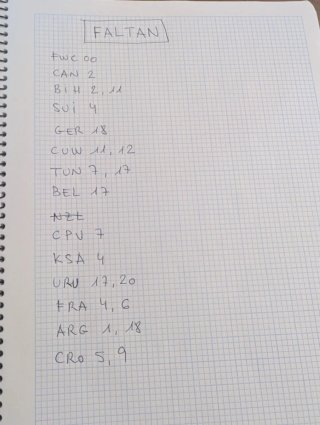 FALTAN
FWC 00
CAN 2
BIH 2, 11
SUI 4
GER 18
CUW 11, 12
TUN 7, 17
BEL 17
NZL
CPV 7
KSA 4
URU 17, 20
FRA 4, 6
ARG 1, 18
CRO 5, 9